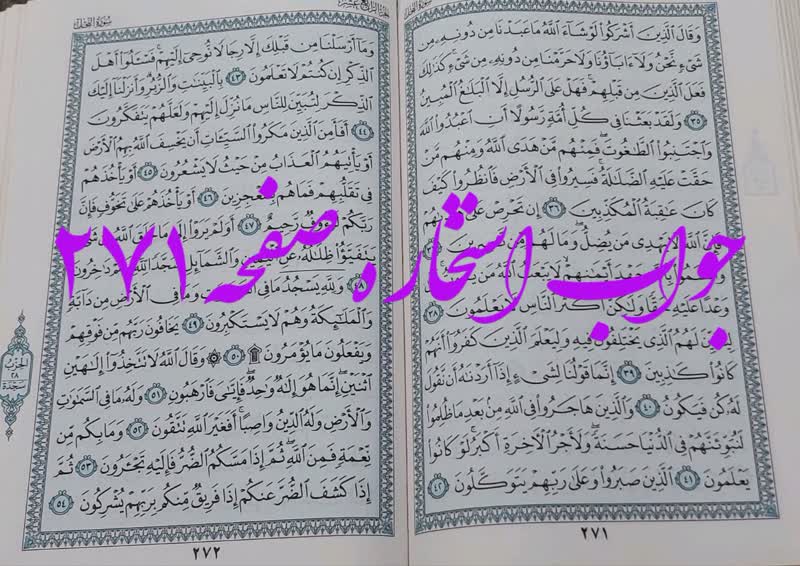 سُورَةُ النَّحْلِ
وَقَالَ ٱلَّذِينَ أَشْرَكُوا۟ لَوْ شَآءَ ٱللَّهُ مَا عَبَدْنَا مِن دُونِهِۦ مِن
شَىْءٍ نَّحْنُ وَلَآ ءَابَآؤُنَا وَلَا حَرَّمْنَا مِن دُونِهِۦ مِن شَىْءٍ كَذَٰلِكَ
فَعَلَ ٱلَّذِينَ مِن قَبْلِهِمْ فَهَلْ عَلَى ٱلرُّسُلِ إِلَّا ٱلْبَلَٰغُ ٱلْمُبِينُ
٣٥ وَلَقَدْ بَعَثْنَا فِى كُلِّ أُمَّةٍ رَّسُولًا أَنِ ٱعْبُدُوا۟ ٱللَّهَ
وَٱجْتَنِبُوا۟ ٱلطَّٰغُوتَ فَمِنْهُم مَّنْ هَدَى ٱللَّهُ وَمِنْهُم مَّنْ
حَقَّتْ عَلَيْهِ ٱلضَّلَٰلَةُ فَسِيرُوا۟ فِى ٱلْأَرْضِ فَٱنظُرُوا۟ كَيْفَ
كَانَ عَٰقِبَةُ ٱلْمُكَذِّبِينَ ٣٦ إِن تَحْرِصْ عَلَىٰ
ٱللَّهَ لَا يَهْدِى مَن يُضِلُّ وَمَا لَهُم
جَهْدَ أَيْمَٰنِهِمْ لَا يَبْعَثُ ٱللَّهُ مَن
وَعْدًا عَلَيْهِ حَقًّا وَلَٰكِنَّ أَكْثَرَ ٱلنَّاسِ يَعْلَمُونَ ٣٨
لِيُبَيِّنَ لَهُمُ ٱلَّذِى يَخْتَلِفُونَ فِيهِ وَلِيَعْلَمَ ٱلَّذِينَ كَفَرُوٓا۟ أَنَّهُمْ
كَانُوا۟ كَٰذِبِينَ ٣٩ إِنَّمَا قَوْلُنَا لِشَىْءٍ إِذَآ أَرَدْنَٰهُ أَن نَّقُولَ
لَهُۥ كُن فَيَكُونُ ٤٠ وَٱلَّذِينَ هَاجَرُوا۟ فِى ٱللَّهِ مِنۢ بَعْدِ مَا ظُلِمُوا۟
لَنُبَوِّئَنَّهُمْ فِى ٱلدُّنْيَا حَسَنَةً وَلَأَجْرُ ٱلْءَاخِرَةِ أَكْبَرُ لَوْ كَانُوا۟
يَعْلَمُونَ ٤١ ٱلَّذِينَ صَبَرُوا۟ وَعَلَىٰ رَبِّهِمْ يَتَوَكَّلُونَ ٤٢
٢٧١
سُورَةُ النَّحْلِ
وَمَآ أَرْسَلْنَا مِن قَبْلِكَ إِلَّا رِجَالًا نُّوحِىٓ إِلَيْهِمْ فَسْـَٔلُوٓا۟ أَهْلَ
ٱلذِّكْرِ إِن كُنتُمْ لَا تَعْلَمُونَ ٤٣ بِٱلْبَيِّنَٰتِ وَٱلزُّبُرِ وَأَنزَلْنَآ إِلَيْكَ
ٱلذِّكْرَ لِتُبَيِّنَ لِلنَّاسِ مَا نُزِّلَ إِلَيْهِمْ وَلَعَلَّهُمْ يَتَفَكَّرُونَ
٤٤ أَفَأَمِنَ ٱلَّذِينَ مَكَرُوا۟ ٱلسَّيِّـَٔاتِ أَن يَخْسِفَ ٱللَّهُ بِهِمُ ٱلْأَرْضَ
أَوْ يَأْتِيَهُمُ ٱلْعَذَابُ مِنْ حَيْثُ لَا يَشْعُرُونَ ٤٥ أَوْ يَأْخُذَهُمْ
فِى تَقَلُّبِهِمْ فَمَا هُم بِمُعْجِزِينَ ٤٦ أَوْ يَأْخُذَهُمْ عَلَىٰ تَخَوُّفٍ فَإِنَّ
رَبَّكُمْ لَرَءُوفٌ رَّحِيمٌ ٤٧ أَوَلَمْ يَرَوْا۟ إِلَىٰ مَا خَلَقَ ٱللَّهُ
يَتَفَيَّؤُا۟ ظِلَٰلُهُۥ عَنِ ٱلْيَمِينِ وَٱلشَّمَآئِلِ سُجَّدًا لِّلَّهِ دَٰخِرُونَ
٤٨ وَلِلَّهِ يَسْجُدُ مَا فِى وَمَا فِى ٱلْأَرْضِ مِن دَآبَّةٍ
وَٱلْمَلَٰٓئِكَةُ وَهُمْ لَا يَسْتَكْبِرُونَ ٤٩ يَخَافُونَ رَبَّهُم مِّن فَوْقِهِمْ
وَيَفْعَلُونَ مَا يُؤْمَرُونَ ۩ ٥٠ ۞ وَقَالَ ٱللَّهُ لَا تَتَّخِذُوٓا۟ إِلَٰهَيْنِ
ٱثْنَيْنِ إِنَّمَا هُوَ إِلَٰهٌ وَٰحِدٌ فَإِيَّٰىَ فَٱرْهَبُونِ ٥١ وَلَهُۥ مَا فِى ٱلسَّمَٰوَٰتِ
وَٱلْأَرْضِ وَلَهُ ٱلدِّينُ وَاصِبًا أَفَغَيْرَ ٱللَّهِ تَتَّقُونَ ٥٢ وَمَا بِكُم مِّن
نِّعْمَةٍ فَمِنَ ٱللَّهِ ثُمَّ إِذَا مَسَّكُمُ ٱلضُّرُّ فَإِلَيْهِ تَجْـَٔرُونَ ٥٣ ثُمَّ
إِذَا كَشَفَ ٱلضُّرَّ عَنكُمْ إِذَا فَرِيقٌ مِّنكُم بِرَبِّهِمْ يُشْرِكُونَ ٥٤
٢٧٢
الحزب
٢٨
سجدة
جواب استخاره صفحه ۲۷۱